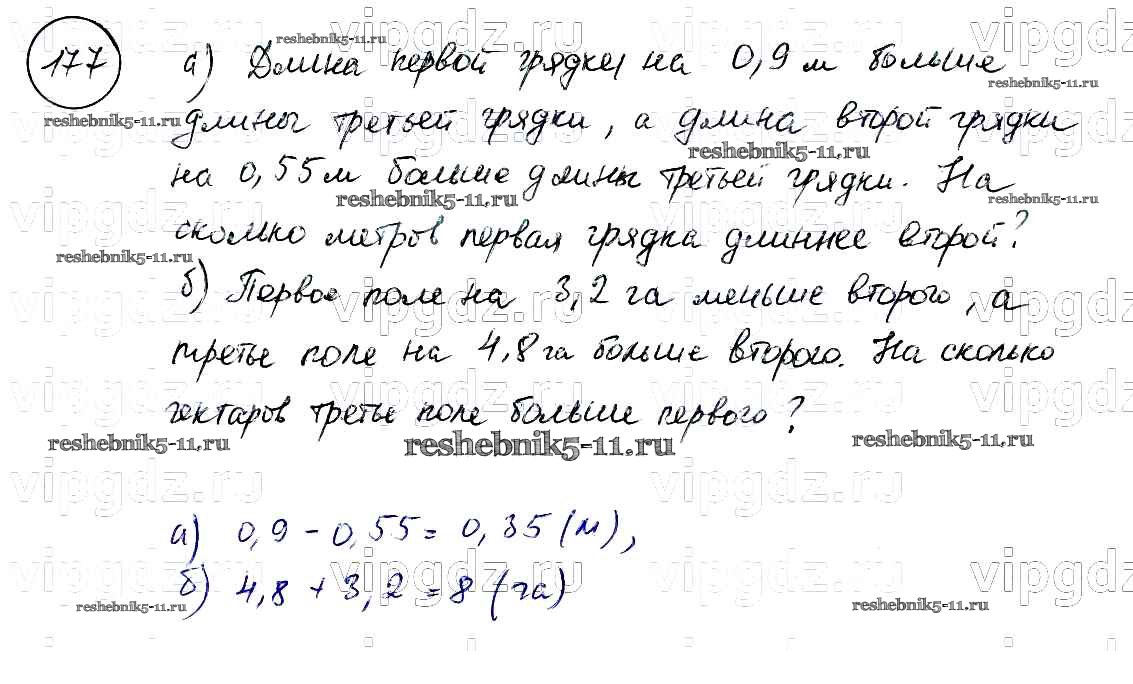 177
а) Длина первой грядки на 0,9 м больше
длины третьей грядки, а длина второй грядки
на 0,55 м больше длины третьей грядки. На
сколько метров первая грядка длиннее второй?
б) Первое поле на 3,2 га меньше второго, а
третье поле на 4,8 га больше второго. На сколько
гектаров третье поле больше первого?
а) 0,9 - 0,55 = 0,35 (м),
б) 4,8 + 3,2 = 8 (га)
vipgdz.ru
reshebnik5-11.ru